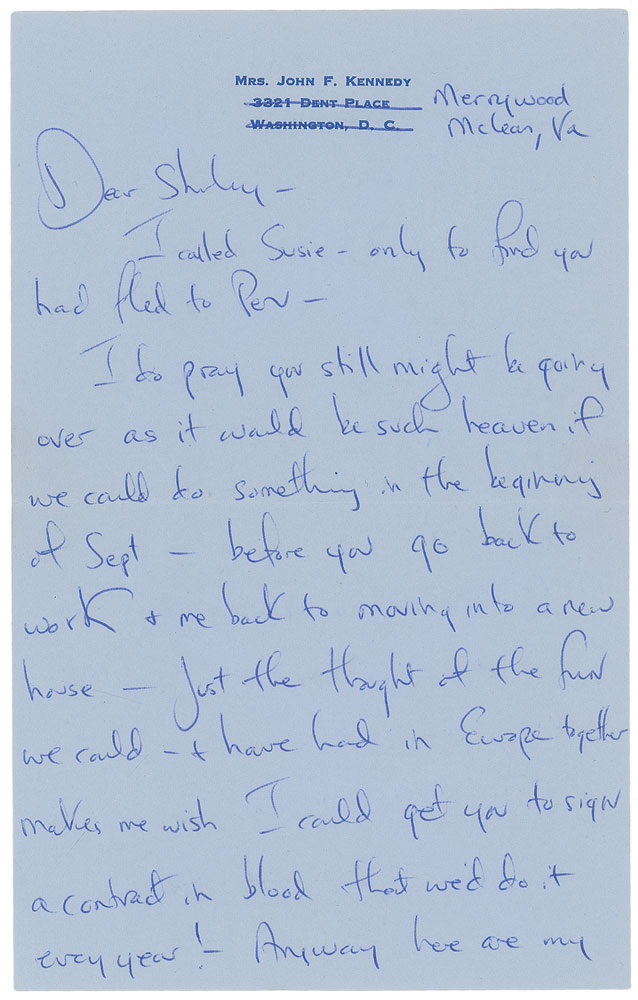 MRS. JOHN F. KENNEDY
3321 DENT PLACE
WASHINGTON, D. C.
Merrywood
McLean, Va
Dear Shirley –
I called Susie – only to find you
had fled to Peru –
I do pray you still might be going
over as it would be such heaven if
we could do something in the beginning
of Sept – before you go back to
work + me back to moving into a new
house – Just the thought of the fun
we could – + have had in Europe together
makes me wish I could get you to sign
a contract in blood that we'd do it
every year! – Anyway here are my